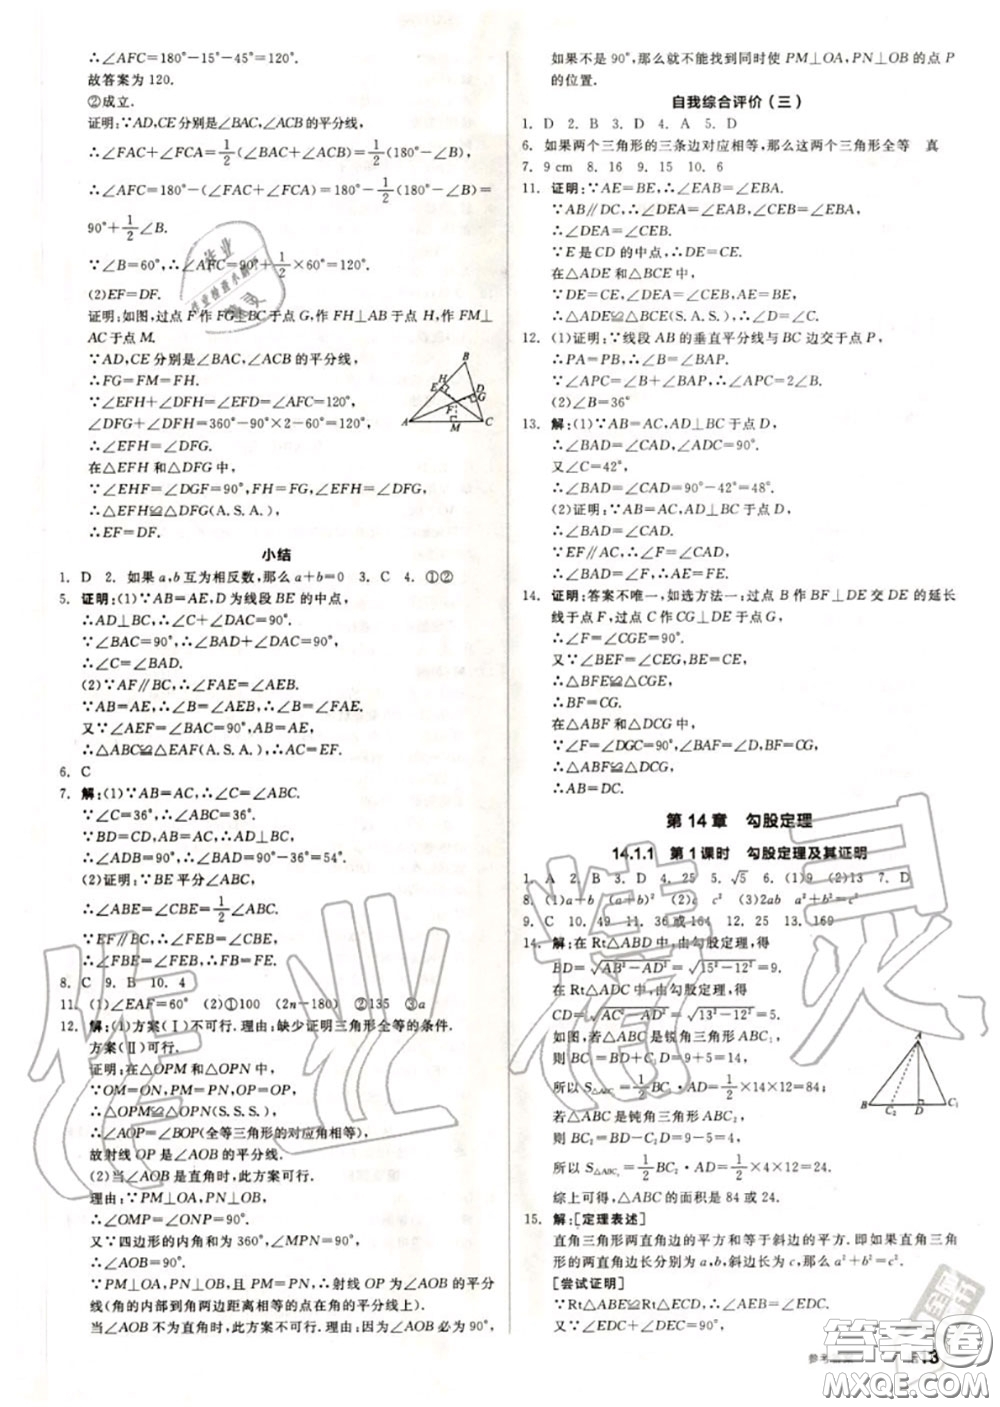 ∴∠AFC=180°-15°-45°=120°.
故答案为 120.
②成立.
证明:∵AD,CE 分别是∠BAC,∠ACB 的平分线,
∴∠FAC+∠FCA=1/2(∠BAC+∠ACB)=1/2(180°-∠B),
∴∠AFC=180°-(∠FAC+∠FCA)=180°-1/2(180°-∠B)=
90°+1/2∠B.
∵∠B=60°,∴∠AFC=90°+1/2×60°=120°.
(2)EF=DF.
证明:如图,过点 F 作 FG⊥BC于点 G,作 FH⊥AB 于点 H,作 FM⊥
AC于点 M.
∵AD,CE 分别是∠BAC,∠ACB 的平分线,
∴FG=FM=FH.
∵∠EFH+∠DFH=∠EFD=∠AFC=120°,
∠DFG+∠DFH=360°-90°×2-60°=120°,
∴∠EFH=∠DFG.
在△EFH 和△DFG 中,
∵∠EHF=∠DGF=90°,FH=FG,∠EFH=∠DFG,
∴△EFH≌△DFG(A.S.A.),
∴EF=DF.
B
H
E
D
G
F
A
M
C
小结
1. D 2. 如果 a,b 互为相反数,那么 a+b=0 3. C 4. ①②
5. 证明:(1)∵AB=AE,D为线段 BE 的中点,
∴AD⊥BC,∴∠C+∠CAD=90°.
∵∠BAC=90°,∴∠BAD+∠DAC=90°,
∴∠C=∠BAD.
(2)∵AF∥BC,∴∠FAE=∠AEB.
∵AB=AE,∴∠B=∠AEB,∴∠B=∠FAE.
又∵∠AEF=∠BAC=90°,AB=AE,
∴△ABC≌△EAF(A.S.A.),∴AC=EF.
6. C
7. 解:(1)∵AB=AC,∴∠C=∠ABC.
∵∠C=36°,∴∠ABC=36°.
∵BD=CD,AB=AC,∴AD⊥BC,
∴∠ADB=90°,∴∠BAD=90°-36°=54°.
(2)证明:∵BE平分∠ABC,
∴∠ABE=∠CBE=1/2∠ABC.
∵EF∥BC,∴∠FEB=∠CBE,
∴∠FBE=∠FEB,∴FB=FE.
8. C 9. B 10. 4
11. (1)∠EAF=60° (2)①100 (2n-180) ②135 ③a
12. 解:(1)方案(Ⅰ)不可行.理由:缺少证明三角形全等的条件.
方案(Ⅱ)可行.
证明:在△OPM 和△OPN 中,
∵OM=ON,PM=PN,OP=OP,
∴△OPM≌△OPN(S.S.S.),
∴∠AOP=∠BOP(全等三角形的对应角相等),
故射线 OP 是∠AOB 的平分线.
(2)当∠AOB 是直角时,此方案可行.
理由:∵PM⊥OA,PN⊥OB,
∴∠OMP=∠ONP=90°.
又∵四边形的内角和为 360°,∠MPN=90°,
∴∠AOB=90°.
∵PM⊥OA,PN⊥OB,且 PM=PN,∴射线 OP 是∠AOB 的平分
线(角的内部到角两边距离相等的点在角的平分线上).
当∠AOB 不为直角时,此方案不可行.理由:因为∠AOB 必为 90°,
如果不是 90°,那么就不能找到同时使 PM⊥OA,PN⊥OB 的点 P
的位置.
自我综合评价(三)
1. D 2. B 3. D 4. A 5. D
6. 如果两个三角形的三条边对应相等,那么这两个三角形全等 真
7. 9 cm 8. 16 9. 15 10. 6
11. 证明:∵AE=BE,∴∠EAB=∠EBA.
∵AB∥DC,∴∠DEA=∠EAB,∠CEB=∠EBA,
∴∠DEA=∠CEB.
∵E 是 CD 的中点,∴DE=CE.
在△ADE 和△BCE 中,
∵DE=CE,∠DEA=∠CEB,AE=BE,
∴△ADE≌△BCE(S.A.S.),∴∠D=∠C.
12. (1)证明:∵线段 AB 的垂直平分线与 BC 边交于点 P,
∴PA=PB,∴∠B=∠BAP.
∵∠APC=∠B+∠BAP,∴∠APC=2∠B.
(2)∠B=36°
13. 解:(1)∵AB=AC,AD⊥BC 于点 D,
∴∠BAD=∠CAD,∠ADC=90°.
又∠C=42°,
∴∠BAD=∠CAD=90°-42°=48°.
(2)证明:∵AB=AC,AD⊥BC 于点 D,
∴∠BAD=∠CAD.
∵EF∥AC,∴∠F=∠CAD,
∴∠BAD=∠F,∴AE=FE.
14. 证明:答案不唯一,如选方法一:过点 B 作 BF⊥DE 交 DE 的延长
线于点 F,过点 C 作 CG⊥DE 于点 G,
∴∠F=∠CGE=90°.
又∵∠BEF=∠CEG,BE=CE,
∴△BFE≌△CGE,
∴BF=CG.
在△ABF 和△DCG 中,
∵∠F=∠DGC=90°,∠BAF=∠D,BF=CG,
∴△ABF≌△DCG,
∴AB=DC.
第 14 章 勾股定理
14.1.1 第 1 课时 勾股定理及其证明
1. A 2. B 3. D 4. 25 5. √5 6. (1)9 (2)13 7. D
8. (1)a+b (a+b)² (2)c c² (3)2ab a²+b²=c²
9. C 10. 49 11. 36 或 164 12. 25 13. 169
14. 解:在 Rt△ABD 中,由勾股定理,得
BD=√(AB²-AD²)=√(15²-12²)=9.
在 Rt△ADC 中,由勾股定理,得
CD=√(AC²-AD²)=√(13²-12²)=5.
如图,若△ABC 是锐角三角形 ABC₁,
则 BC₁=BD+C₁D=9+5=14,
所以 S△ABC₁=1/2BC₁·AD=1/2×14×12=84;
若△ABC 是钝角三角形 ABC₂,
则 BC₂=BD-C₂D=9-5=4,
所以 S△ABC₂=1/2BC₂·AD=1/2×4×12=24.
综上可得,△ABC 的面积是 84 或 24.
A
B
C₂
D
C₁
15. 解:[定理表述]
直角三角形两直角边的平方和等于斜边的平方.即如果直角三角
形的两直角边长分别为 a,b,斜边长为 c,那么 a²+b²=c².
[尝试证明]
∵Rt△ABE≌Rt△ECD,∴∠AEB=∠EDC.
又∵∠EDC+∠DEC=90°,
作业精灵
答案圈
MXQE.COM